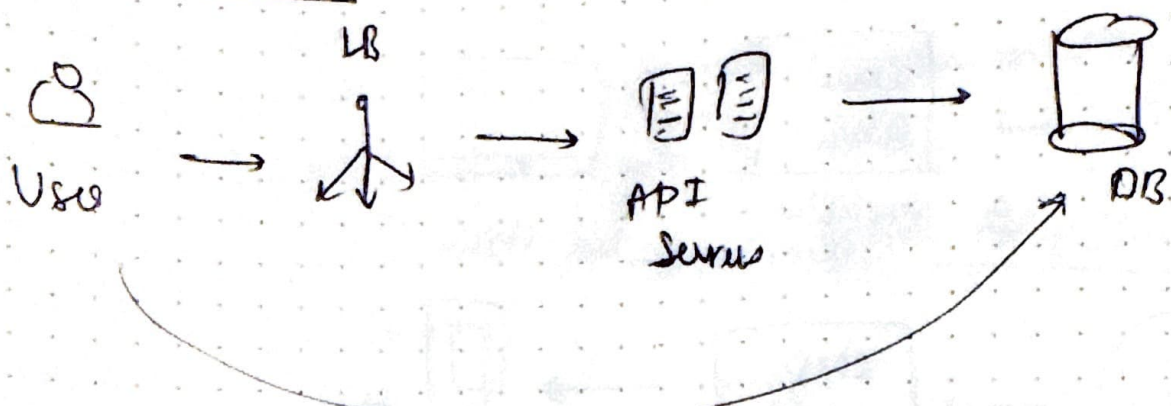 LB
User
API
Servers
DB